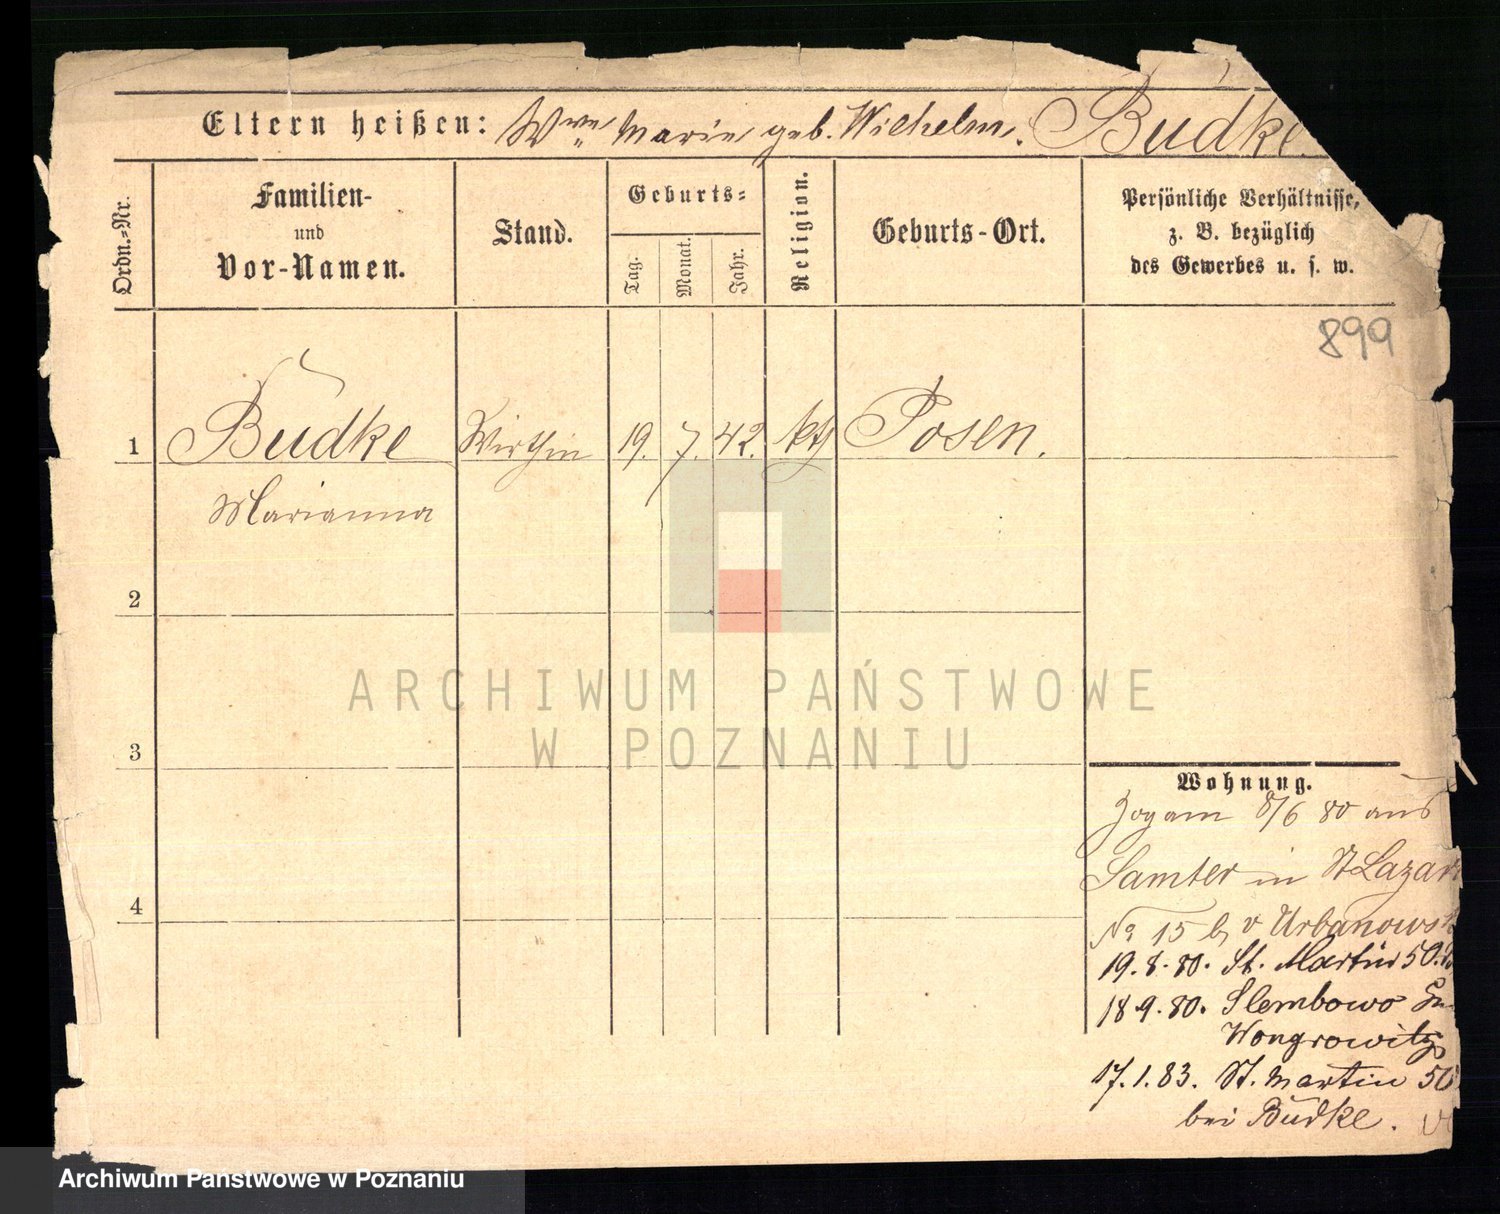 Eltern heißen: Wwe Marie geb. Wilhelm. Budke
Ordn.-Nr.
Familien-
und
Vor-Namen.
Stand.
Geburts-
Tag.
Monat.
Jahr.
Religion.
Geburts-Ort.
Persönliche Verhältnisse,
z. B. bezüglich
des Gewerbes u. s. w.
899
1 Budke Wirthin 19. 7. 42. kth Posen.
Marianna
2
3
4
ARCHIWUM PAŃSTWOWE
W POZNANIU
Wohnung.
Zog am 8/6 80 aus
Samter in St Lazar
No 15 b v Urbanows
19.8.80. St. Martin 50.
18 9.80. Slembowo
Wongrowitz
17.1.83. St. Martin 50
bei Budke.
Archiwum Państwowe w Poznaniu